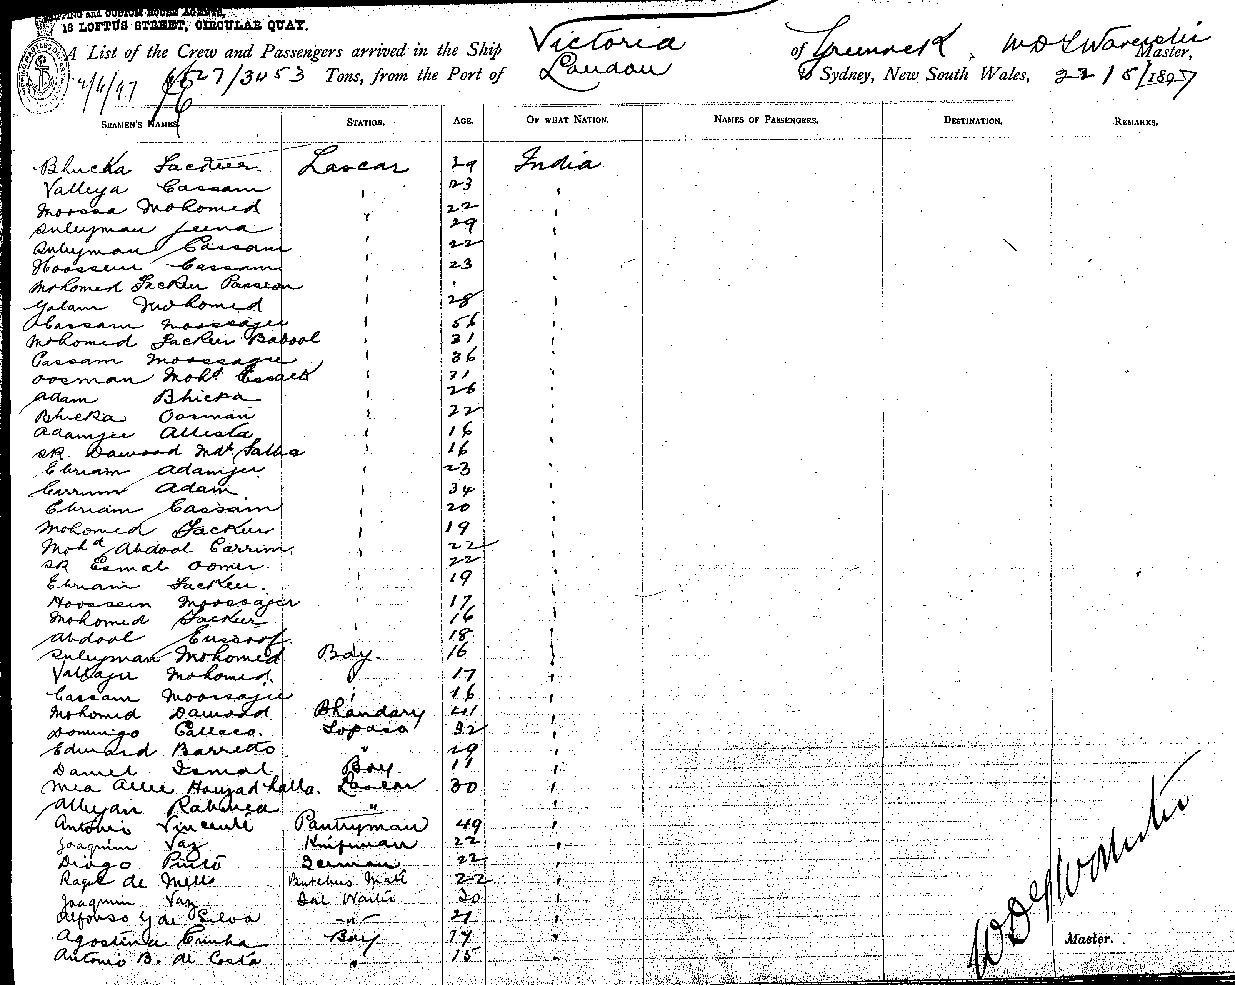 SHIPPING AND CUSTOM HOUSE AGENTS,
16 LOFTUS STREET, CIRCULAR QUAY.
A List of the Crew and Passengers arrived in the Ship Victoria of Greenock, Master,
3453 Tons, from the Port of London to Sydney, New South Wales, 22/5/1897
SEAMEN'S NAMES. STATION. AGE. OF WHAT NATION. NAMES OF PASSENGERS. DESTINATION. REMARKS.
Bhicka Jackier Lascar 29 India
Valleya Cassam " 23 "
Moossa Mohomed " 22 "
Suleyman Jeena " 29 "
Suleyman Cassam " 22 "
Hoossein Cassam " 23 "
Mohomed Jackier " "
Golam Mohomed " 28 "
Cassam Moossajee " 56 "
Mohomed Jackier Babool " 31 "
Cassam Moossajee " 36 "
Oosman Mohd Essack " 31 "
Adam Bhicka " 26 "
Bhicka Oosman " 22 "
Adamjee " 16 "
SK. Dawood Md " 16 "
Ebriam Adamjee " 23 "
Carrim Adam " 34 "
Ebriam Cassam " 20 "
Mohomed Jackier " 19 "
Mohd Abdool Carrim " 22 "
SK Esmal Oomer " 22 "
Ebriam Jackier " 19 "
Hoossein Moossajee " 17 "
Mohomed Jackier " 16 "
Abdool Eussoof " 18 "
Suleyman Mohomed Boy. 16 "
Vallajee Mohomed " 17 "
Cassam Moossajee " 16 "
Mohomed Dawood Bhandary 41 "
Domingo Topass 32 "
Edward Barredo " 29 "
Daniel Ismal Boy "
Mia Allie Lascar 30 "
Alleyan " "
Antonio Vincente Pantryman 49 "
Joaquim Vaz 22 "
Diogo Pinto 22 "
de Mello Butchers Mate 22 "
Joaquim Vaz 30 "
Alfonso de Silva " 21 "
Agostinho Cunha Boy "
Antonio B. de Costa " 15 "
Master.